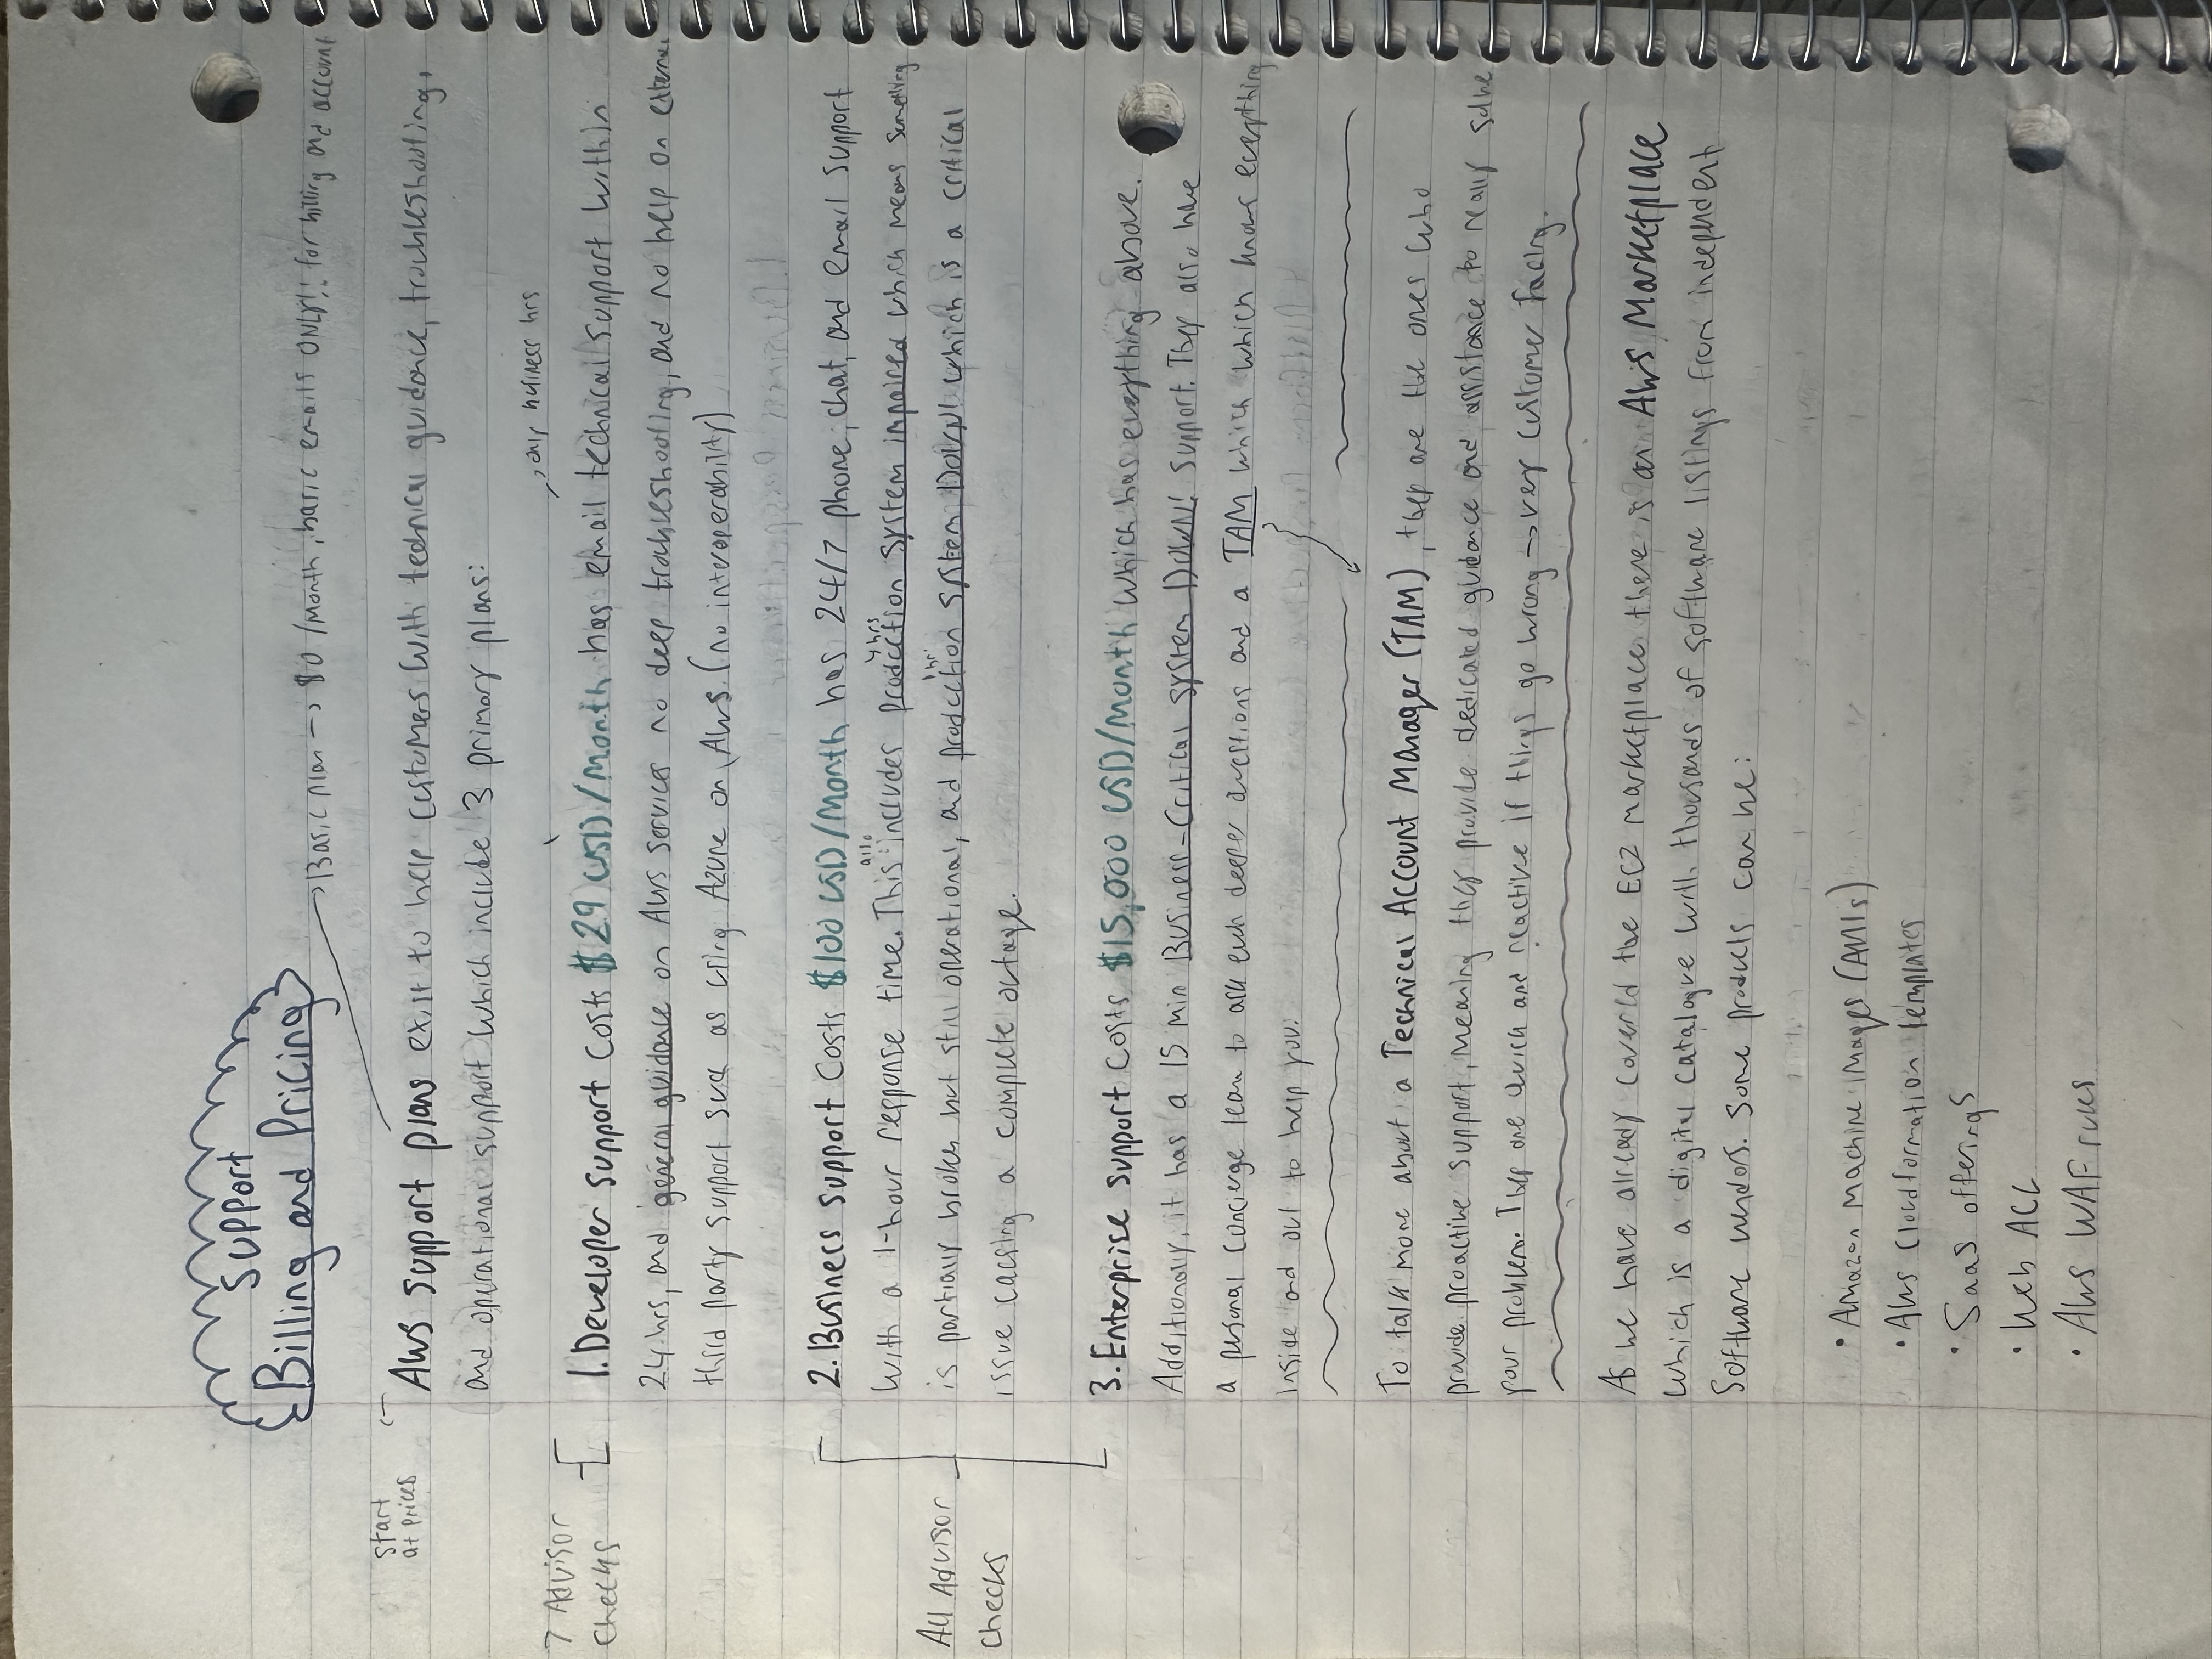 Support
Billing and Pricing
Basic plan → $0 /Month, basic emails ONLY!! for billing and account
start
at prices
AWS support plans exist to help customers with technical guidance, troubleshooting,
and operational support which include 3 primary plans:
only business hrs
7 Advisor
Checks
1. Developer support costs $29 USD/Month has email technical support within
24 hrs, and general guidance on AWS services no deep troubleshooting, and no help on external
third party support such as using Azure on AWS (no interoperability)
2. Business support costs $100 USD/Month has 24/7 phone, chat, and email support
also
4hrs
with a 1-hour response time. This includes production system impaired which means something
1hr
All Advisor
Checks
is partially broken but still operational, and production system DOWN! which is a critical
issue causing a complete outage.
3. Enterprise support costs $15,000 USD/Month which has everything above.
Additionally, it has a 15 min Business-Critical system DOWN! support. They also have
a personal concierge team to ask even deeper questions and a TAM which which knows everything
inside and out to help you.
To talk more about a Technical Account Manager (TAM), they are the ones who
provide proactive support, meaning they provide dedicated guidance and assistance to really solve
your problem. They are quick and reactive if things go wrong → very customer facing.
As we have already covered the EC2 marketplace there is an AWS Marketplace
which is a digital catalogue with thousands of software listings from independent
software vendors. Some products can be:
• Amazon Machine Images (AMIs)
• AWS Cloudformation templates
• SaaS offerings
• Web ACL
• AWS WAF rules